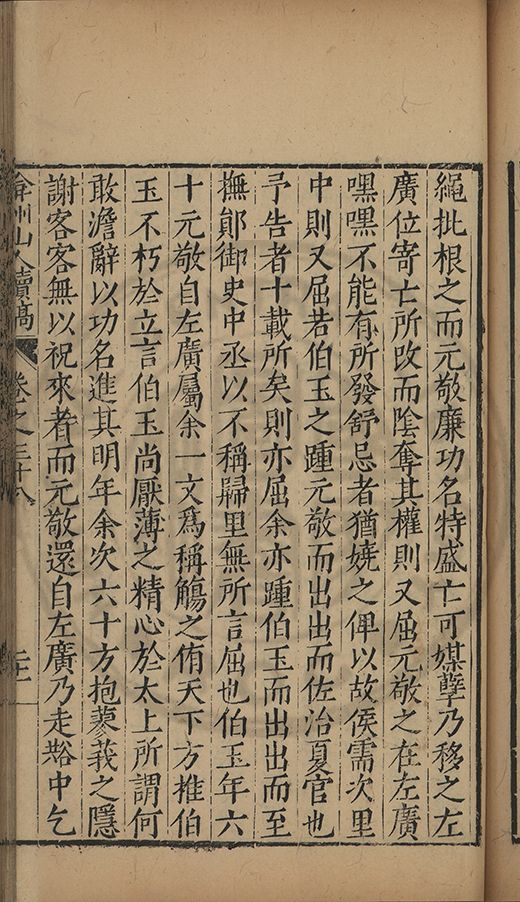 繩批根之而元敬廉功名特盛亡可媒孽乃移之左
廣位寄亡所改而陰奪其權則又屈元敬之在左廣
嘿嘿不能有所發舒忌者猶嬈之俾以故侯需次里
中則又屈若伯玉之踵元敬而出出而佐治夏官也
予告者十載所矣則亦屈余亦踵伯玉而出出而至
撫鄖御史中丞以不稱歸里無所言屈也伯玉年六
十元敬自左廣屬余一文爲稱觴之侑天下方推伯
玉不朽於立言伯玉尚厭薄之精心於太上所謂何
敢澹辭以功名進其明年余次六十方抱蓼莪之隱
謝客客無以祝來者而元敬還自左廣乃走谿中乞
弇州山人續稿
卷之三十八
二十一